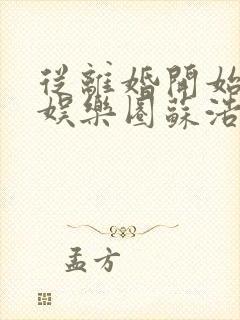 從離婚開始
娛樂圈蘇浩
孟方